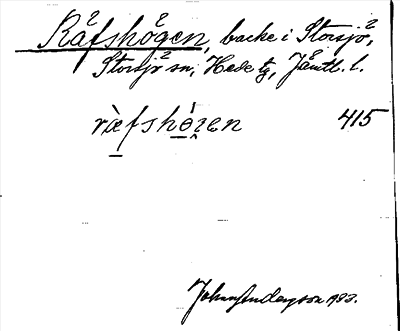 Räfshögen, backe i Storsjö,
Storsjö sn, Hede tg, Jämtl. l.
ræfshögen 415
John Anderson 1933.